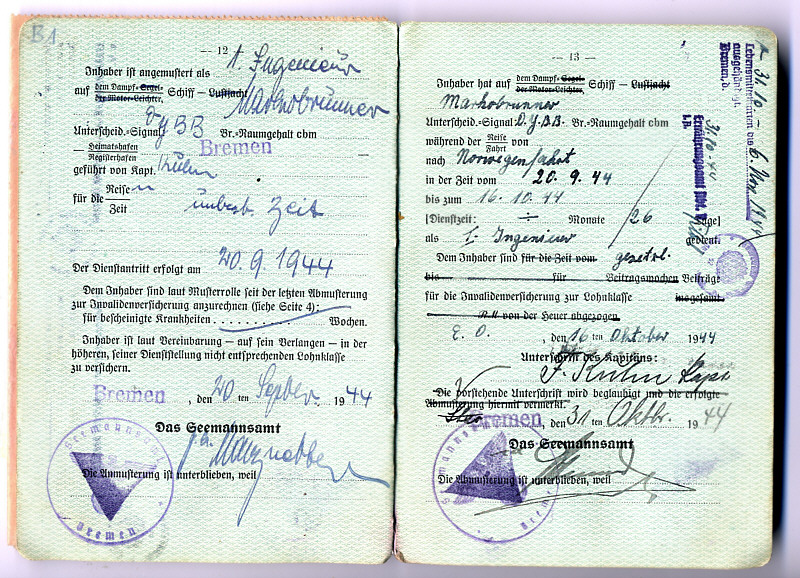 B1
— 12 —
Inhaber ist angemustert als 1. Ingenieur
auf dem Dampf-Segel- Schiff — Lustjacht
der Motor-Leichter, Markobrunner
Unterscheid.-Signal DYBB Br.-Raumgehalt cbm
Heimatshafen Bremen
Registerhafen
geführt von Kapt. Kühn
für die Reise
Zeit unbest. Zeit
Der Dienstantritt erfolgt am 20.9.1944
Dem Inhaber sind laut Musterrolle seit der letzten Abmusterung
zur Invalidenversicherung anzurechnen (siehe Seite 4):
für bescheinigte Krankheiten . . . . . . . . Wochen.
Inhaber ist laut Vereinbarung — auf sein Verlangen — in der
höheren, seiner Dienststellung nicht entsprechenden Lohnklasse
zu versichern.
Bremen, den 20 ten Septber 1944
Das Seemannsamt
Die Anmusterung ist unterblieben, weil
Seemannsamt
Bremen
— 13 —
Inhaber hat auf dem Dampf-Segel- Schiff — Lustjacht
der Motor-Leichter,
Markobrunner
Unterscheid.-Signal D.Y.B.B. Br.-Raumgehalt cbm
während der Reise von
Fahrt
nach Norwegenfahrt
in der Zeit vom 20.9.44
bis zum 16.10.44
[Dienstzeit: ÷ Monate 26 Tage]
als 1. Ingenieur gedient.
Dem Inhaber sind für die Zeit vom gesetzl.
bis für Beitragswochen Beiträge
für die Invalidenversicherung zur Lohnklasse insgesamt
RM von der Heuer abgezogen
E. O., den 16 ten Oktober 1944
Unterschrift des Kapitäns:
F. Kühn Kapt
Die vorstehende Unterschrift wird beglaubigt und die erfolgte
Abmusterung hiermit vermerkt.
Bremen, den 31 ten Oktbr. 1944
Das Seemannsamt
Die Abmusterung ist unterblieben, weil
Seemannsamt
Lebensmittelkarten bis
ausgehändigt.
Bremen, d.
31.10.44
Ernährungsamt Abt. B